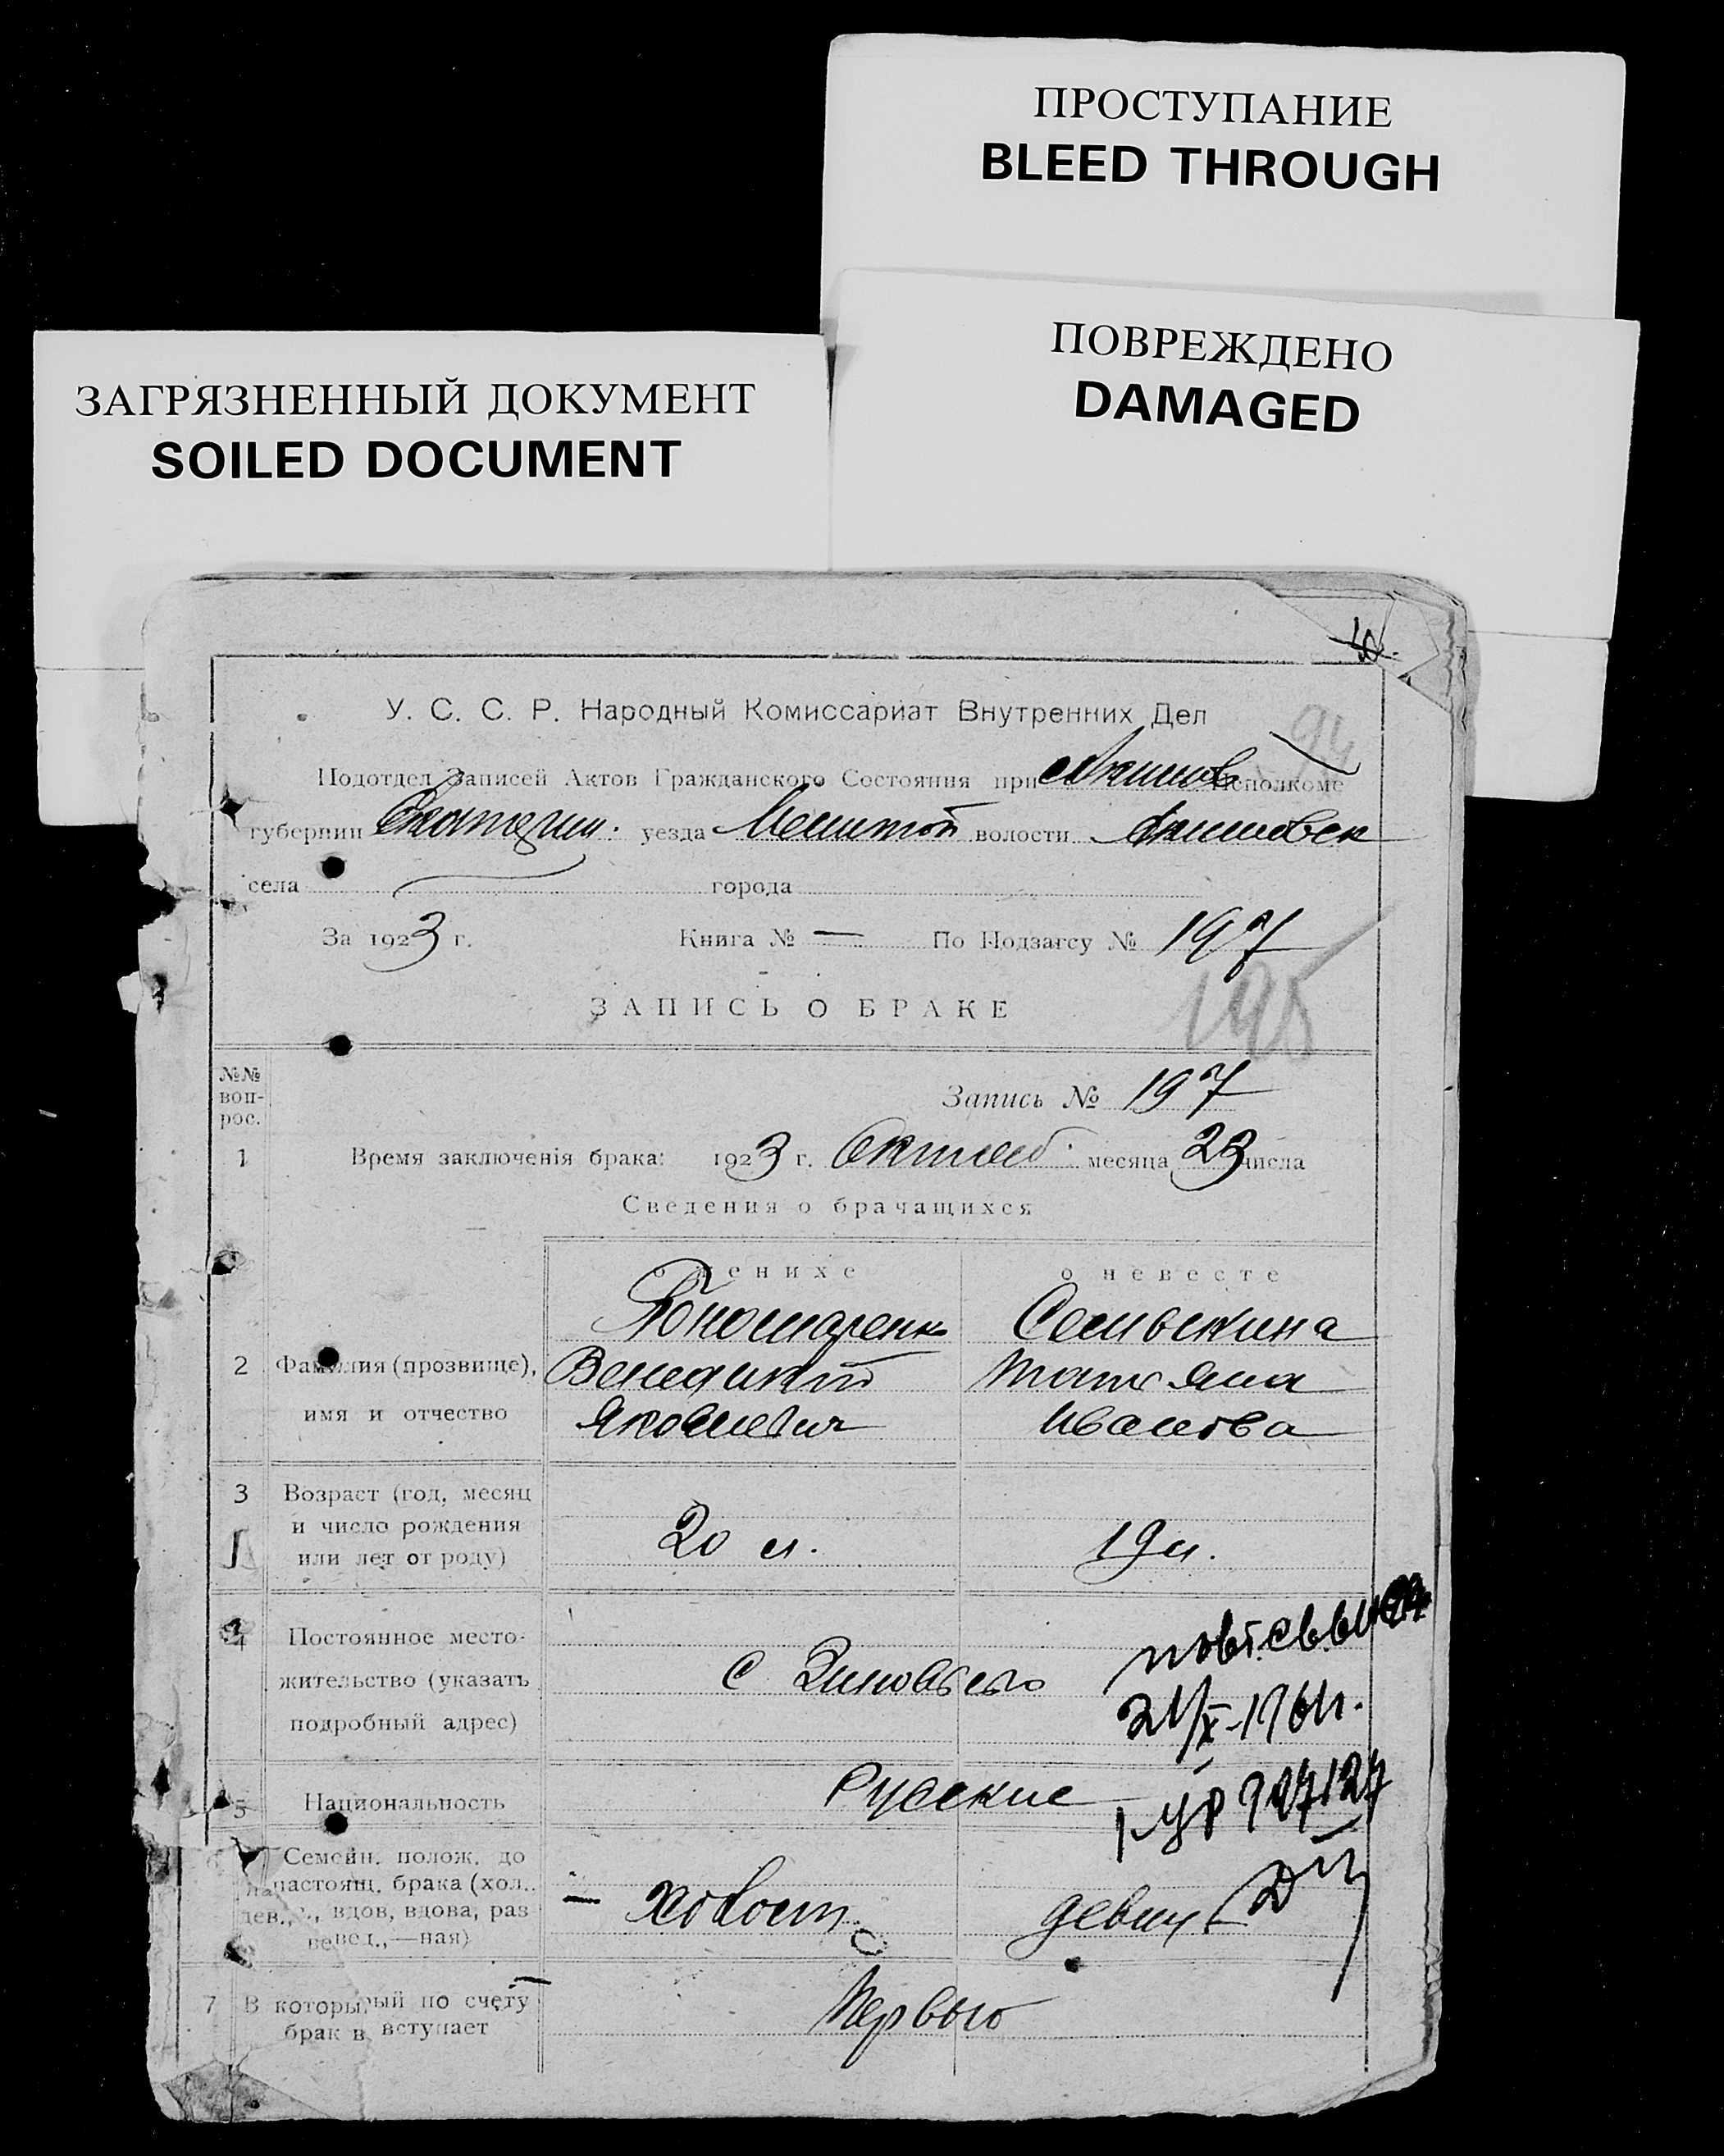 ПРОСТУПАНИЕ
BLEED THROUGH
ПОВРЕЖДЕНО
DAMAGED
ЗАГРЯЗНЕННЫЙ ДОКУМЕНТ
SOILED DOCUMENT
У. С. С. Р. Народный Комиссариат Внутренних Дел
94
Подотдел Записей Актов Гражданского Состояния при Акимов исполкоме
губернии Екатерин. уезда Мелитоп волости Акимовск
села города
За 1923 г. Книга № — По Подзагсу № 197
195
ЗАПИСЬ О БРАКЕ
№№ вопрос.
Запись № 197
1 Время заключенія брака: 1923 г. Октяб. месяца 23 числа
Сведения о брачащихся
о женихе о невесте
Пономаренко Семыкина
2 Фамилия (прозвище), Венедикт Татьяна
имя и отчество Яковлевич Иванова
3 Возраст (год, месяц
и число рождения
или лет от роду) 20 л. 19 л.
4 Постоянное место-
жительство (указать с
подробный адрес)
21/X-1961г.
5 Национальность Русские
6 Семейн. полож. до
настоящ. брака (хол.,
дев., вдов, вдова, раз
вед.,—ная) Холост девиц
7 В который по счету Первый
брак вступает